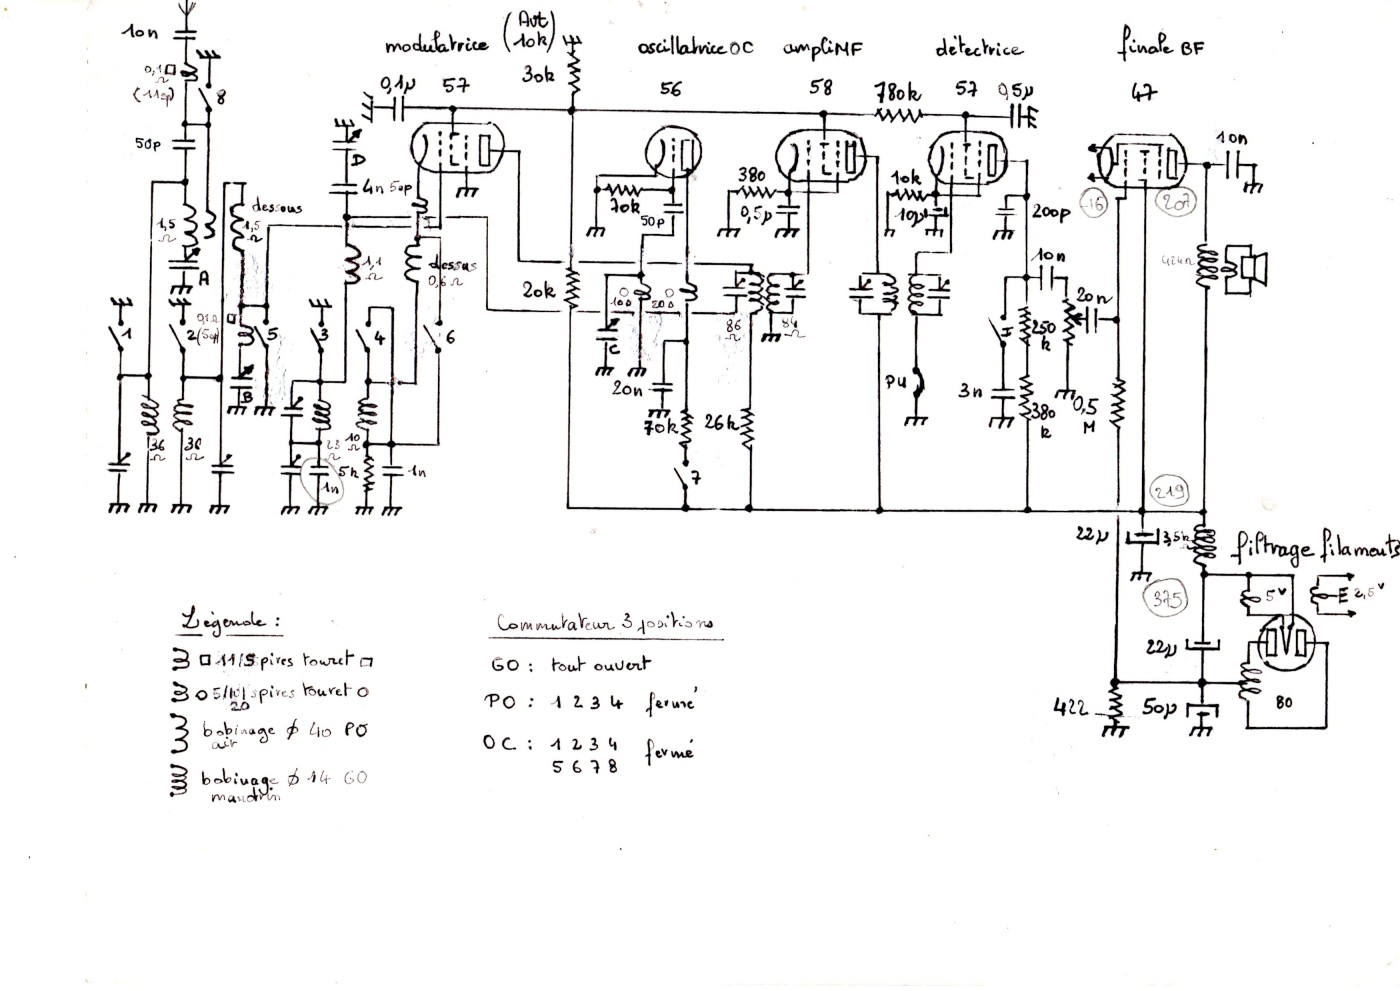 10n
0,1 □
Ω
(11sp)
8
50p
1,5
Ω
A
dessous
1,5
Ω
1
2
0,1Ω □
(5sp)
B
5
36
Ω
36
Ω
modulatrice
(Avt
10k)
30k
0,1µ
57
D
4n
5sp
1,1
Ω
dessus
0,6 Ω
3
4
6
23
Ω
10
Ω
1n
5k
1n
20k
oscillatrice OC
56
70k
50p
O
10Ω
O
20Ω
C
20n
70k
7
26k
86
Ω
84
Ω
ampli MF
58
380
0,5µ
780k
détectrice
57
0,5µ
10k
10µ
200p
10n
PU
3n
250
k
380
k
20n
0,5
M
finale BF
47
-16
207
10n
424Ω
219
22µ
3,5k
Ω
filtrage filaments
375
5V
2,5V
22µ
422
50µ
80
Légende :
□ 11/5 spires touret □
O 5/10/ spires touret O
20
bobinage ϕ 40 PO
air
bobinage ϕ 14 GO
mandrin
Commutateur 3 positions
GO : tout ouvert
PO : 1 2 3 4 fermé
OC : 1 2 3 4 fermé
5 6 7 8